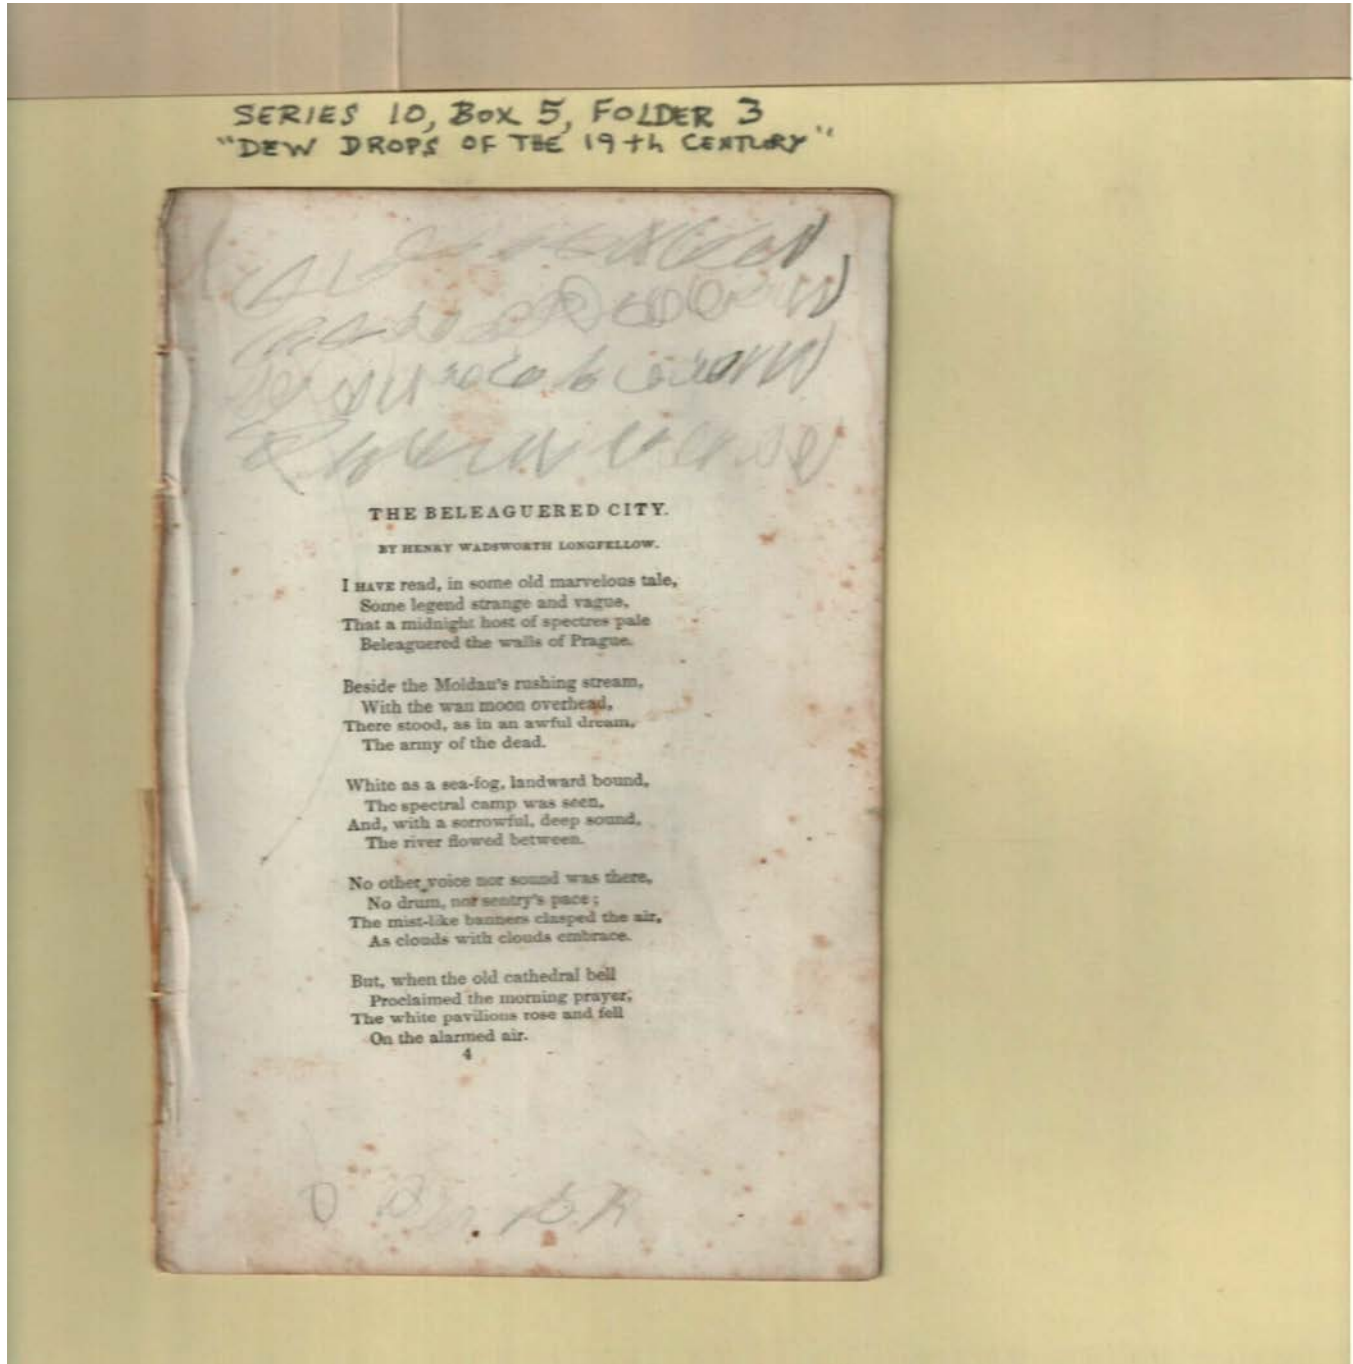 SERIES 10, BOX 5, FOLDER 3
"DEW DROPS OF THE 19th CENTURY"
THE BELEAGUERED CITY.
BY HENRY WADSWORTH LONGFELLOW.
I HAVE read, in some old marvelous tale,
Some legend strange and vague,
That a midnight host of spectres pale
Beleaguered the walls of Prague.
Beside the Moldau's rushing stream,
With the wan moon overhead,
There stood, as in an awful dream,
The army of the dead.
White as a sea-fog, landward bound,
The spectral camp was seen,
And, with a sorrowful, deep sound,
The river flowed between.
No other voice nor sound was there,
No drum, nor sentry's pace;
The mist-like banners clasped the air,
As clouds with clouds embrace.
But, when the old cathedral bell
Proclaimed the morning prayer,
The white pavilions rose and fell
On the alarmed air.
4